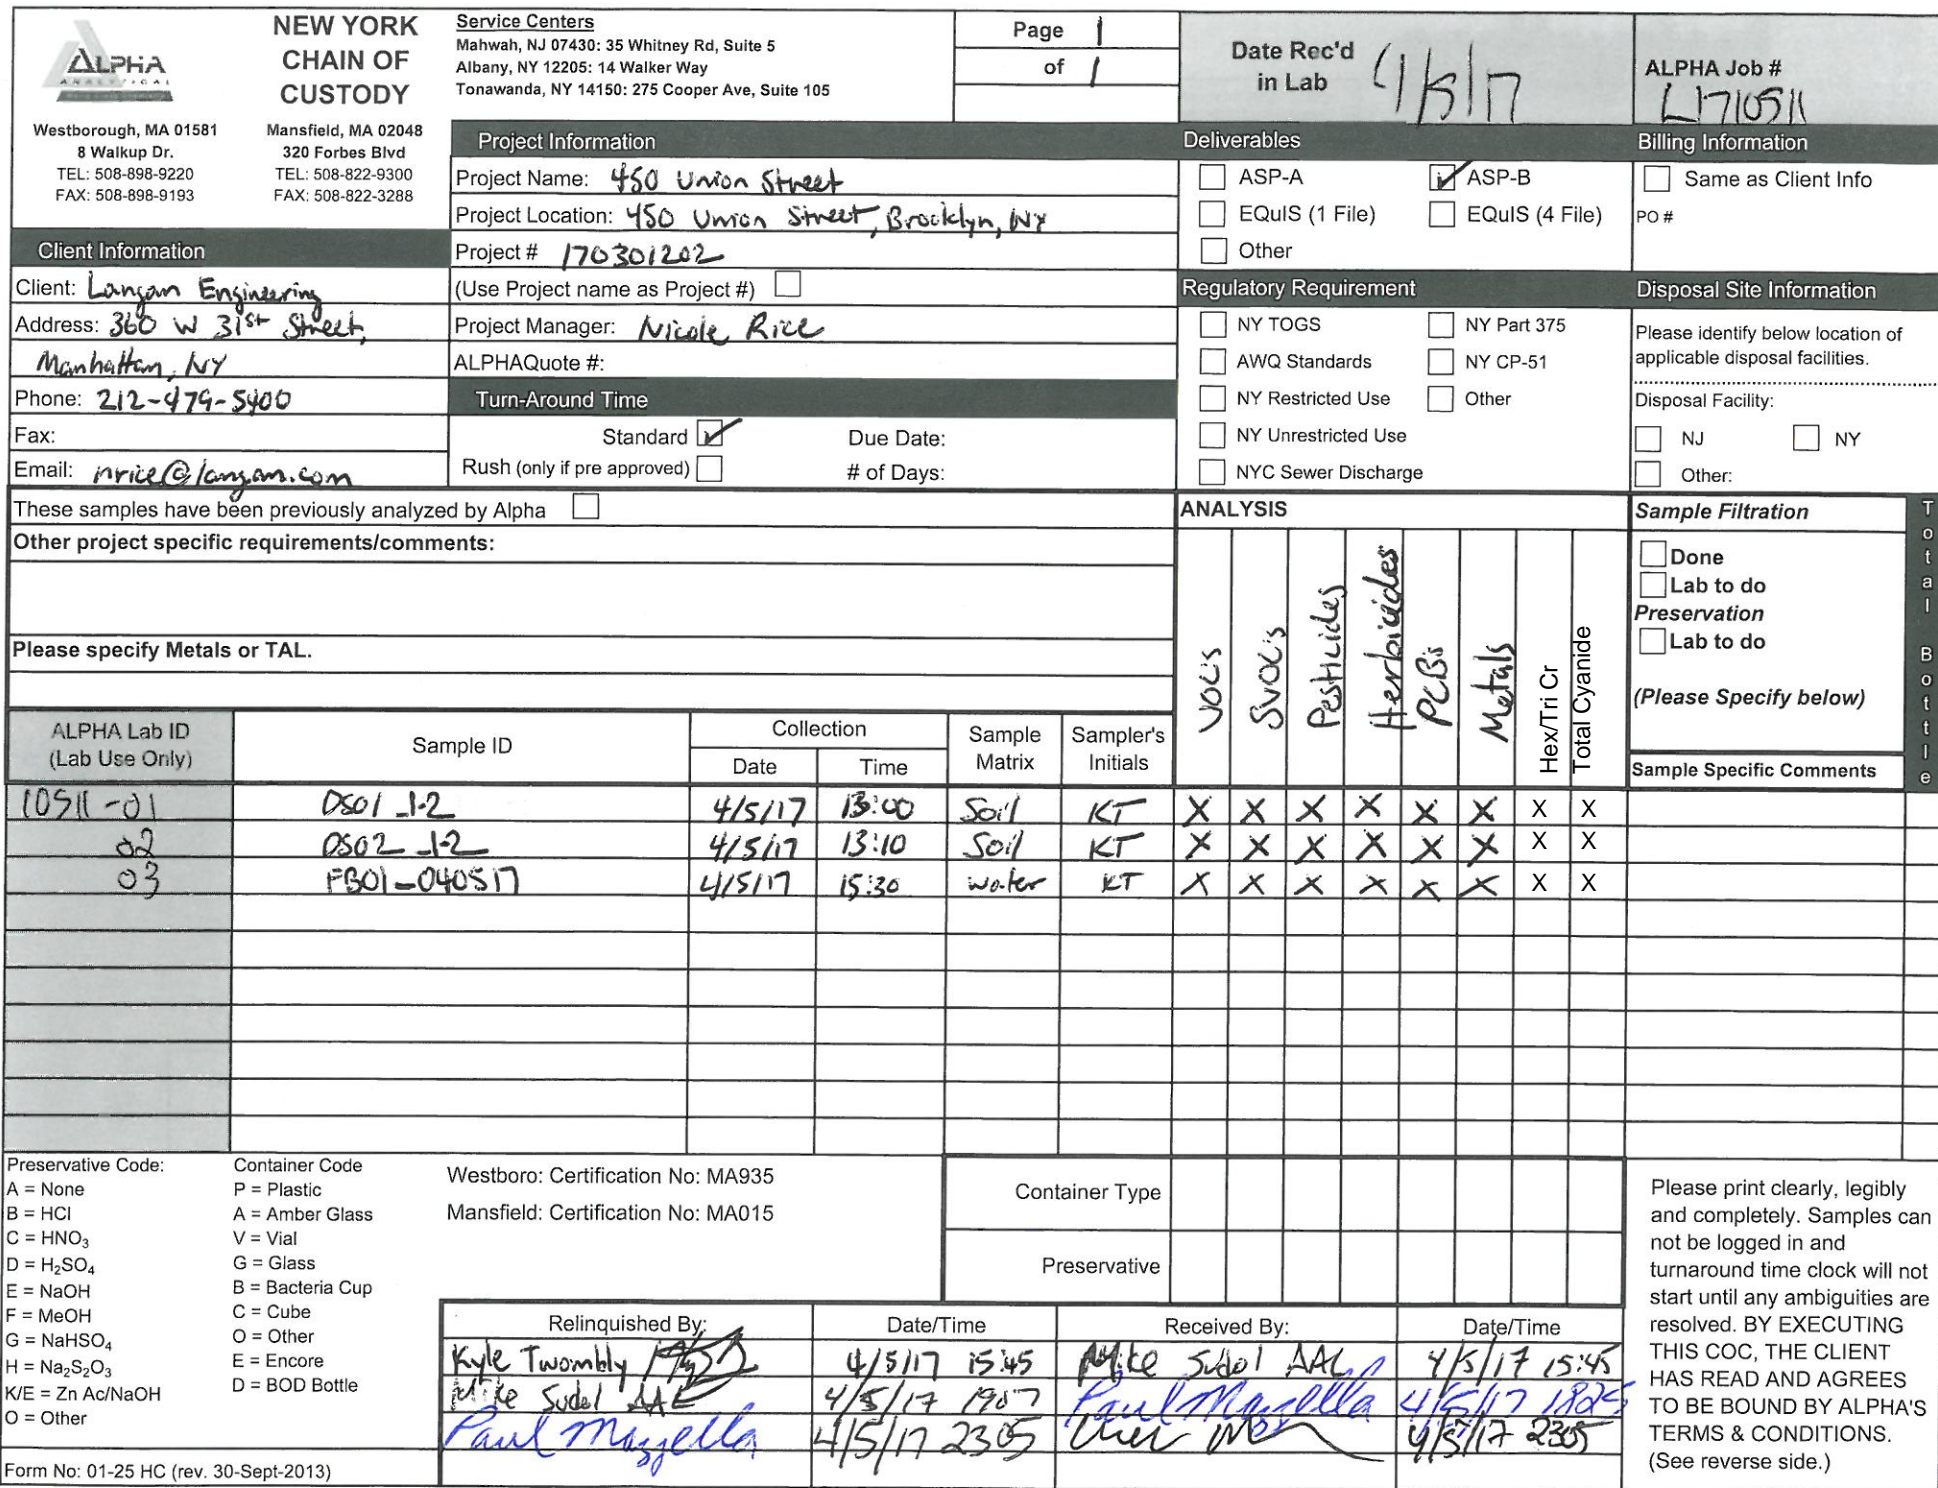 ALPHA
ANALYTICAL
NEW YORK
CHAIN OF
CUSTODY
Westborough, MA 01581
8 Walkup Dr.
TEL: 508-898-9220
FAX: 508-898-9193
Mansfield, MA 02048
320 Forbes Blvd
TEL: 508-822-9300
FAX: 508-822-3288
Service Centers
Mahwah, NJ 07430: 35 Whitney Rd, Suite 5
Albany, NY 12205: 14 Walker Way
Tonawanda, NY 14150: 275 Cooper Ave, Suite 105
Page 1
of 1
Date Rec'd
in Lab 4/5/17
ALPHA Job #
L1710511
Client Information
Client: Langan Engineering
Address: 360 W 31st Street,
Manhattan, NY
Phone: 212-479-5400
Fax:
Email: nrice@langan.com
Project Information
Project Name: 450 Union Street
Project Location: 450 Union Street, Brooklyn, NY
Project # 170301202
(Use Project name as Project #)
Project Manager: Nicole Rice
ALPHAQuote #:
Turn-Around Time
Standard Due Date:
Rush (only if pre approved) # of Days:
Deliverables
ASP-A ASP-B
EQuIS (1 File) EQuIS (4 File)
Other
Regulatory Requirement
NY TOGS NY Part 375
AWQ Standards NY CP-51
NY Restricted Use Other
NY Unrestricted Use
NYC Sewer Discharge
Billing Information
Same as Client Info
PO #
Disposal Site Information
Please identify below location of
applicable disposal facilities.
Disposal Facility:
NJ NY
Other:
These samples have been previously analyzed by Alpha
Other project specific requirements/comments:
Please specify Metals or TAL.
ANALYSIS
VOC's
SVOC's
Pesticides
Herbicides
PCB's
Metals
Hex/Tri Cr
Total Cyanide
Sample Filtration
Done
Lab to do
Preservation
Lab to do
(Please Specify below)
Total Bottle
ALPHA Lab ID
(Lab Use Only)
Sample ID
Collection
Date Time
Sample
Matrix
Sampler's
Initials
Sample Specific Comments
10511-01 DS01_1-2 4/5/17 13:00 Soil KT X X X X X X X X
02 DS02_1-2 4/5/17 13:10 Soil KT X X X X X X X X
03 FB01_040517 4/5/17 15:30 water KT X X X X X X X X
Preservative Code:
A = None
B = HCl
C = HNO3
D = H2SO4
E = NaOH
F = MeOH
G = NaHSO4
H = Na2S2O3
K/E = Zn Ac/NaOH
O = Other
Container Code
P = Plastic
A = Amber Glass
V = Vial
G = Glass
B = Bacteria Cup
C = Cube
O = Other
E = Encore
D = BOD Bottle
Westboro: Certification No: MA935
Mansfield: Certification No: MA015
Container Type
Preservative
Relinquished By: Date/Time Received By: Date/Time
Kyle Twombly 4/5/17 15:45 Mike Sudol AAL 4/5/17 15:45
Mike Sudol AAL 4/5/17 1907 Paul Mazzella 4/5/17 1825
Paul Mazzella 4/5/17 2305 4/5/17 2305
Please print clearly, legibly
and completely. Samples can
not be logged in and
turnaround time clock will not
start until any ambiguities are
resolved. BY EXECUTING
THIS COC, THE CLIENT
HAS READ AND AGREES
TO BE BOUND BY ALPHA'S
TERMS & CONDITIONS.
(See reverse side.)
Form No: 01-25 HC (rev. 30-Sept-2013)